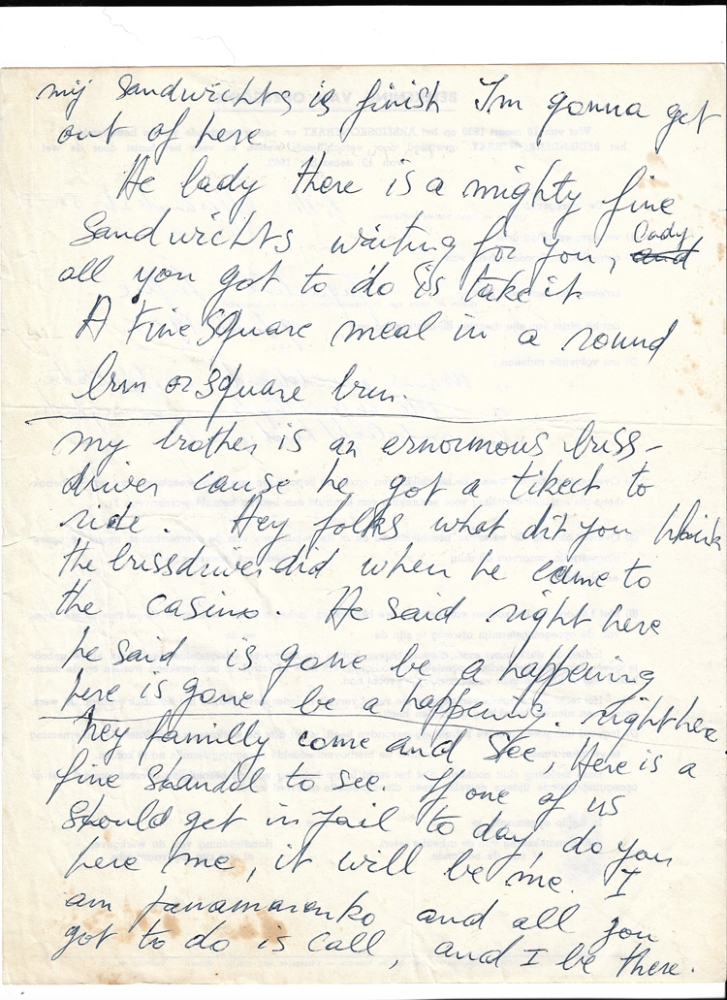 my Sandwichts is finish I'm gonna get
out of here
He lady there is a mighty fine
Sandwichts waiting for you, Lady
all you got to do is take it
A Fine Square meal in a round
brun or square brun.
my brother is an ernourmous briss-
driver cause he got a tikect to
ride. Hey folks what dit you think
the brissdriver did when he came to
the casino. He said right here
he said is gone be a happening
here is gone be a happening right here
hey familly come and see, Here is a
fine skandal to see. If one of us
should get in jail to day, do you
here me, it will be me. I
am and all you
got to do is call, and I be there.